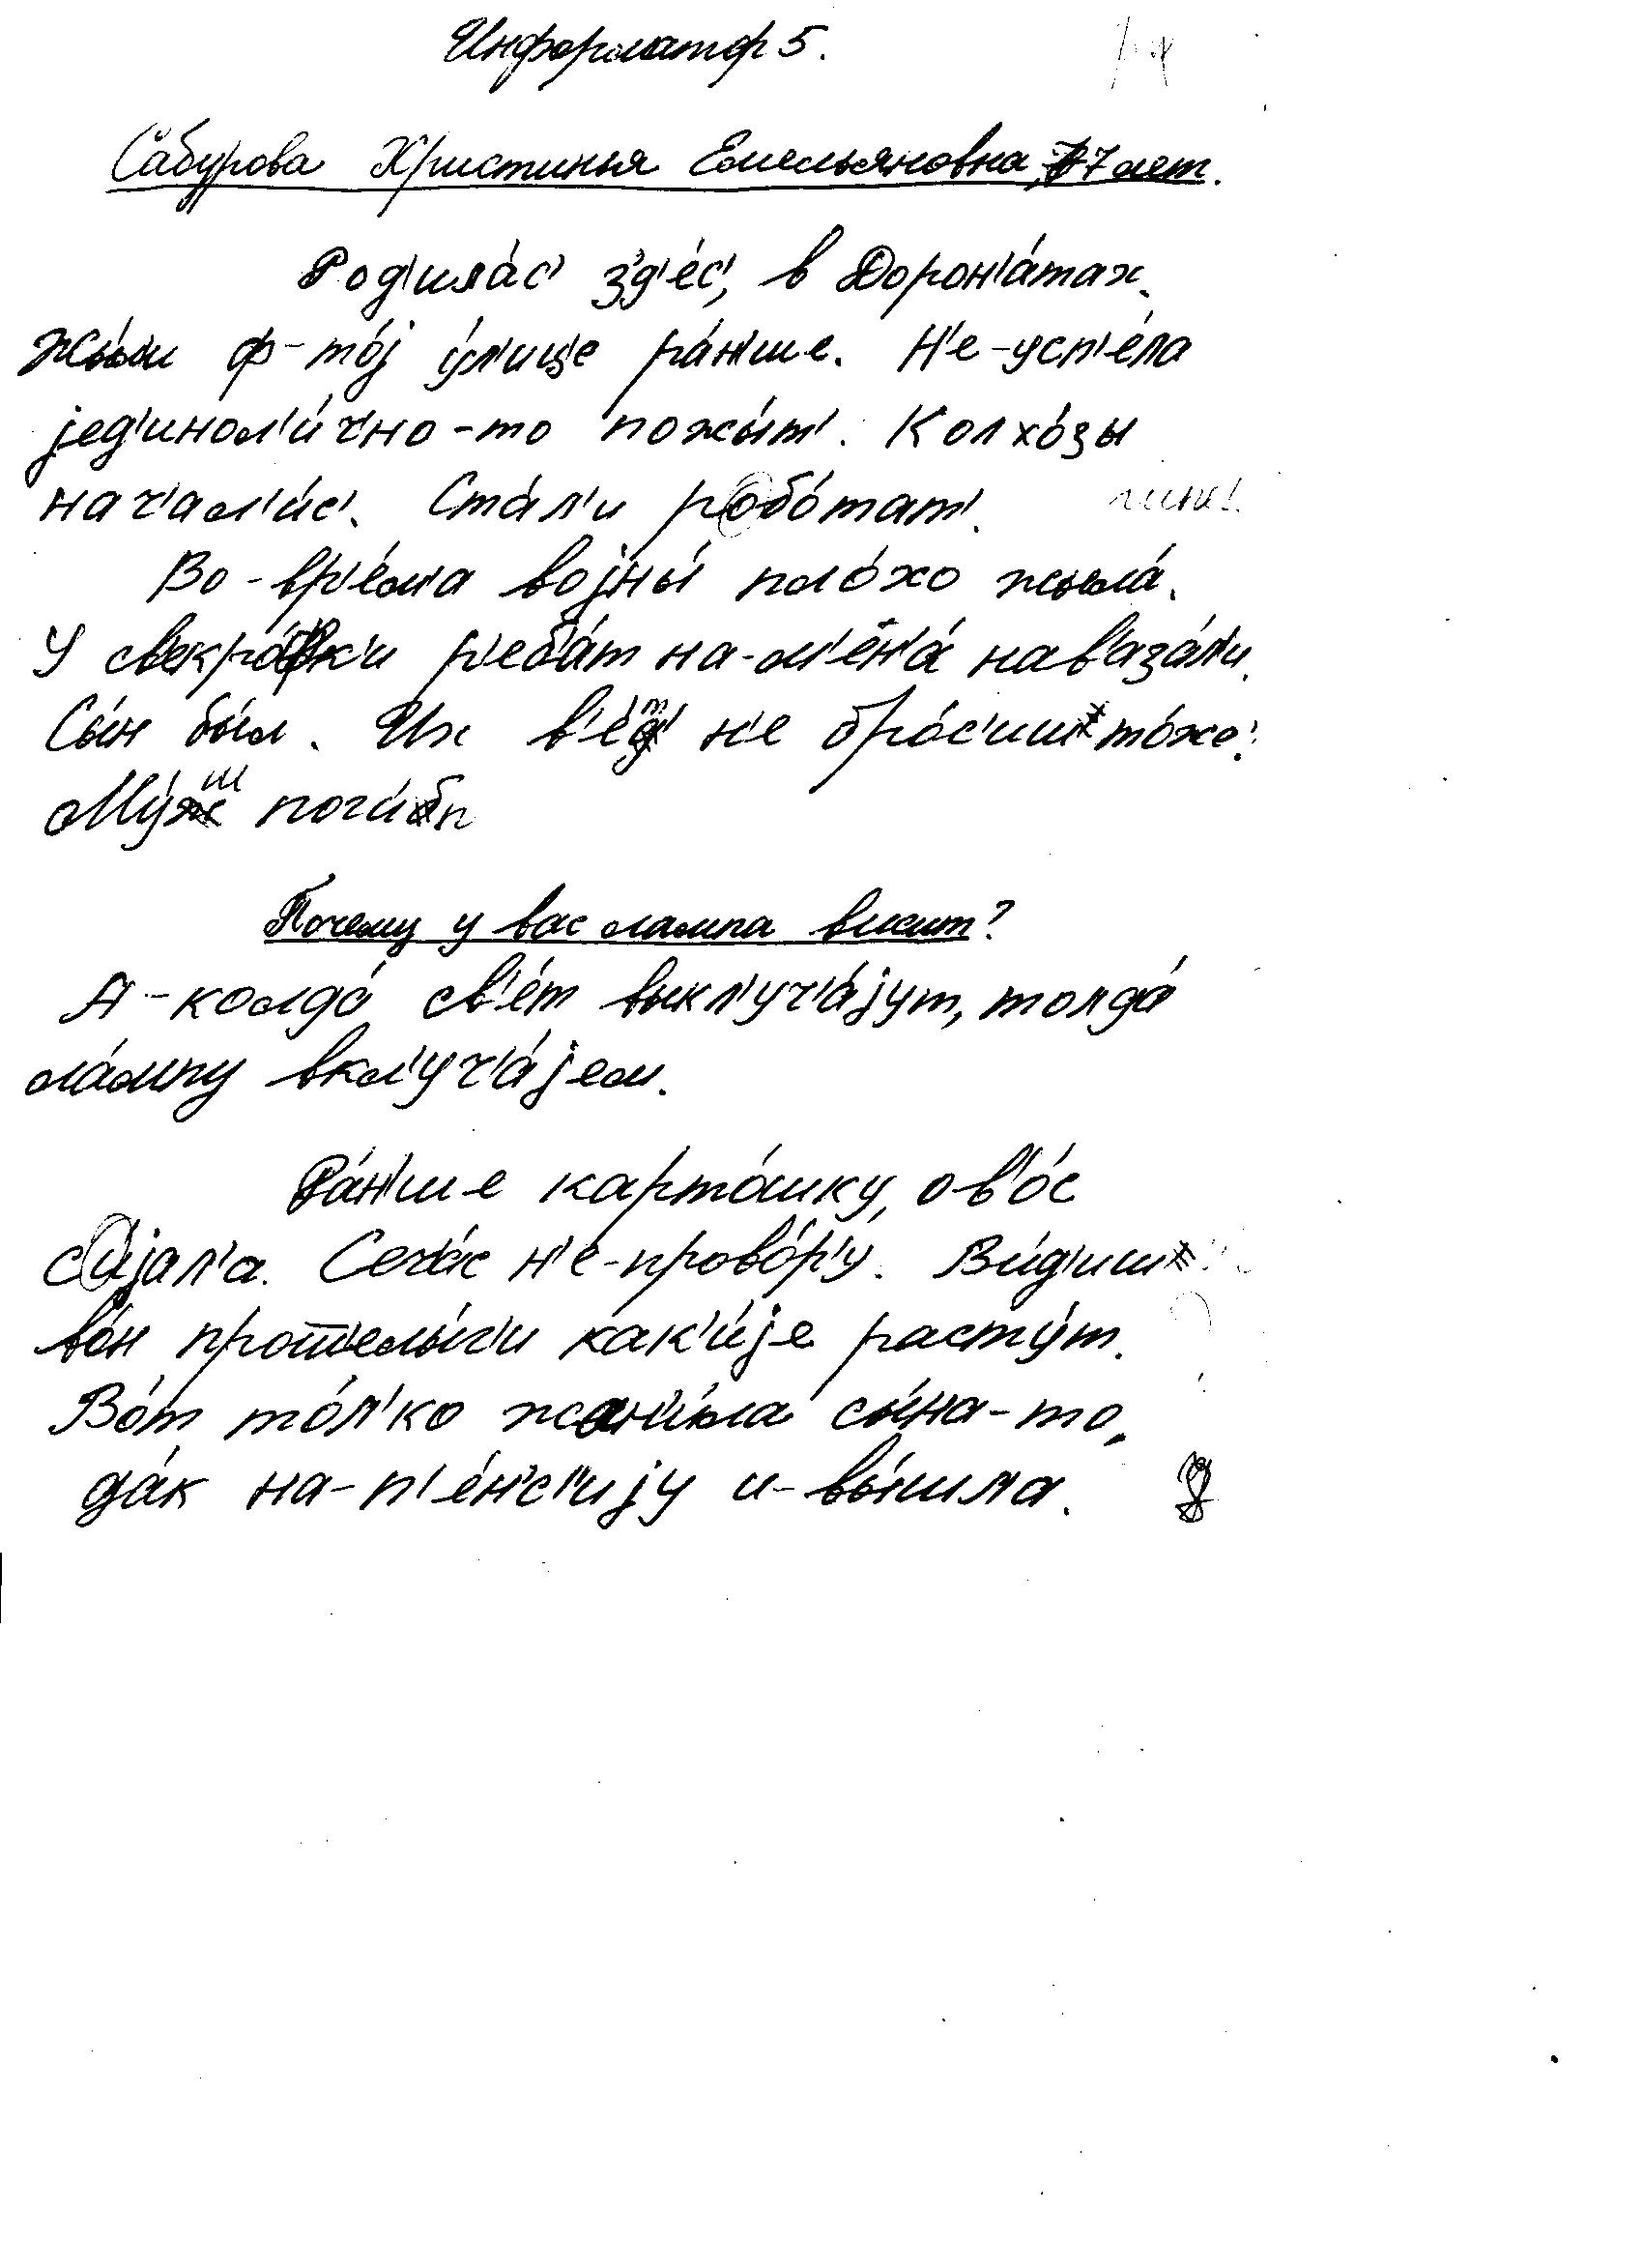 Информатор 5.
Сабурова Христинья Емельяновна, 77 лет.
Род'илáс' з'д'éс', в Дорон'áтах.
Жы́ли ф-тóј у́л'ице рáн'ше. Н'е-усп'éла
јед'инол'и́ч'но-то пожы́т'. Колхóзы
нач'ал'и́с'. Стáл'и робóтат'.
Во-вр'éм'а војны́ плóхо жыла́.
У свекрóфк'и р'еб'áт на-м'ен'á нав'азáл'и.
Сы́н бы́л. Их в'éт' н'е брóс'иш тóжо.
Му́ш поги́п
Почему у вас лампа висит?
А-колдá св'éт выкл'уч'áјут, толдá
лáмпу вкл'уч'áјем.
Рáн'ше картóшку, ов'óс
си́јал'а. Сеч'áс н'е-провóр'у. Ви́д'иш
вóн как'и́је расту́т.
Вóт тóл'ко жани́ла сы́на-то,
дáк на-п'éн'с'ију и-вы́шла.